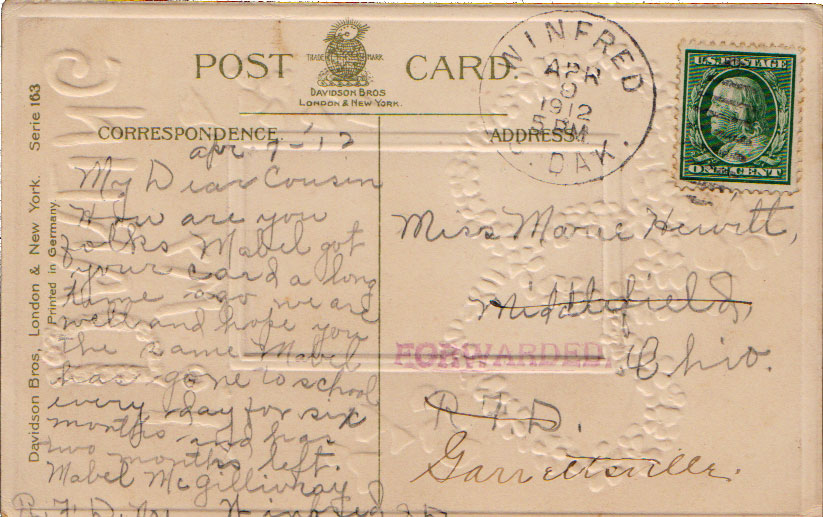 POST CARD.
TRADE MARK
DAVIDSON BROS
LONDON & NEW YORK.
WINFRED
APR
9
1912
5 PM
S. DAK.
U.S. POSTAGE
ONE CENT
Davidson Bros, London & New York. Serie 163
Printed in Germany
CORRESPONDENCE.
Apr 7-'12
My Dear Cousin
How are you
folks Mabel got
your card a long
time ago we are
well and hope you
the same Mabel
has gone to school
every day for six
months and has
two months left.
Mabel McGillivray
R. F. D. Winfred
ADDRESS.
Miss Marie Hewitt,
Middlefield,
FORWARDED.
Ohio.
R. F. D.
Garrettsville.